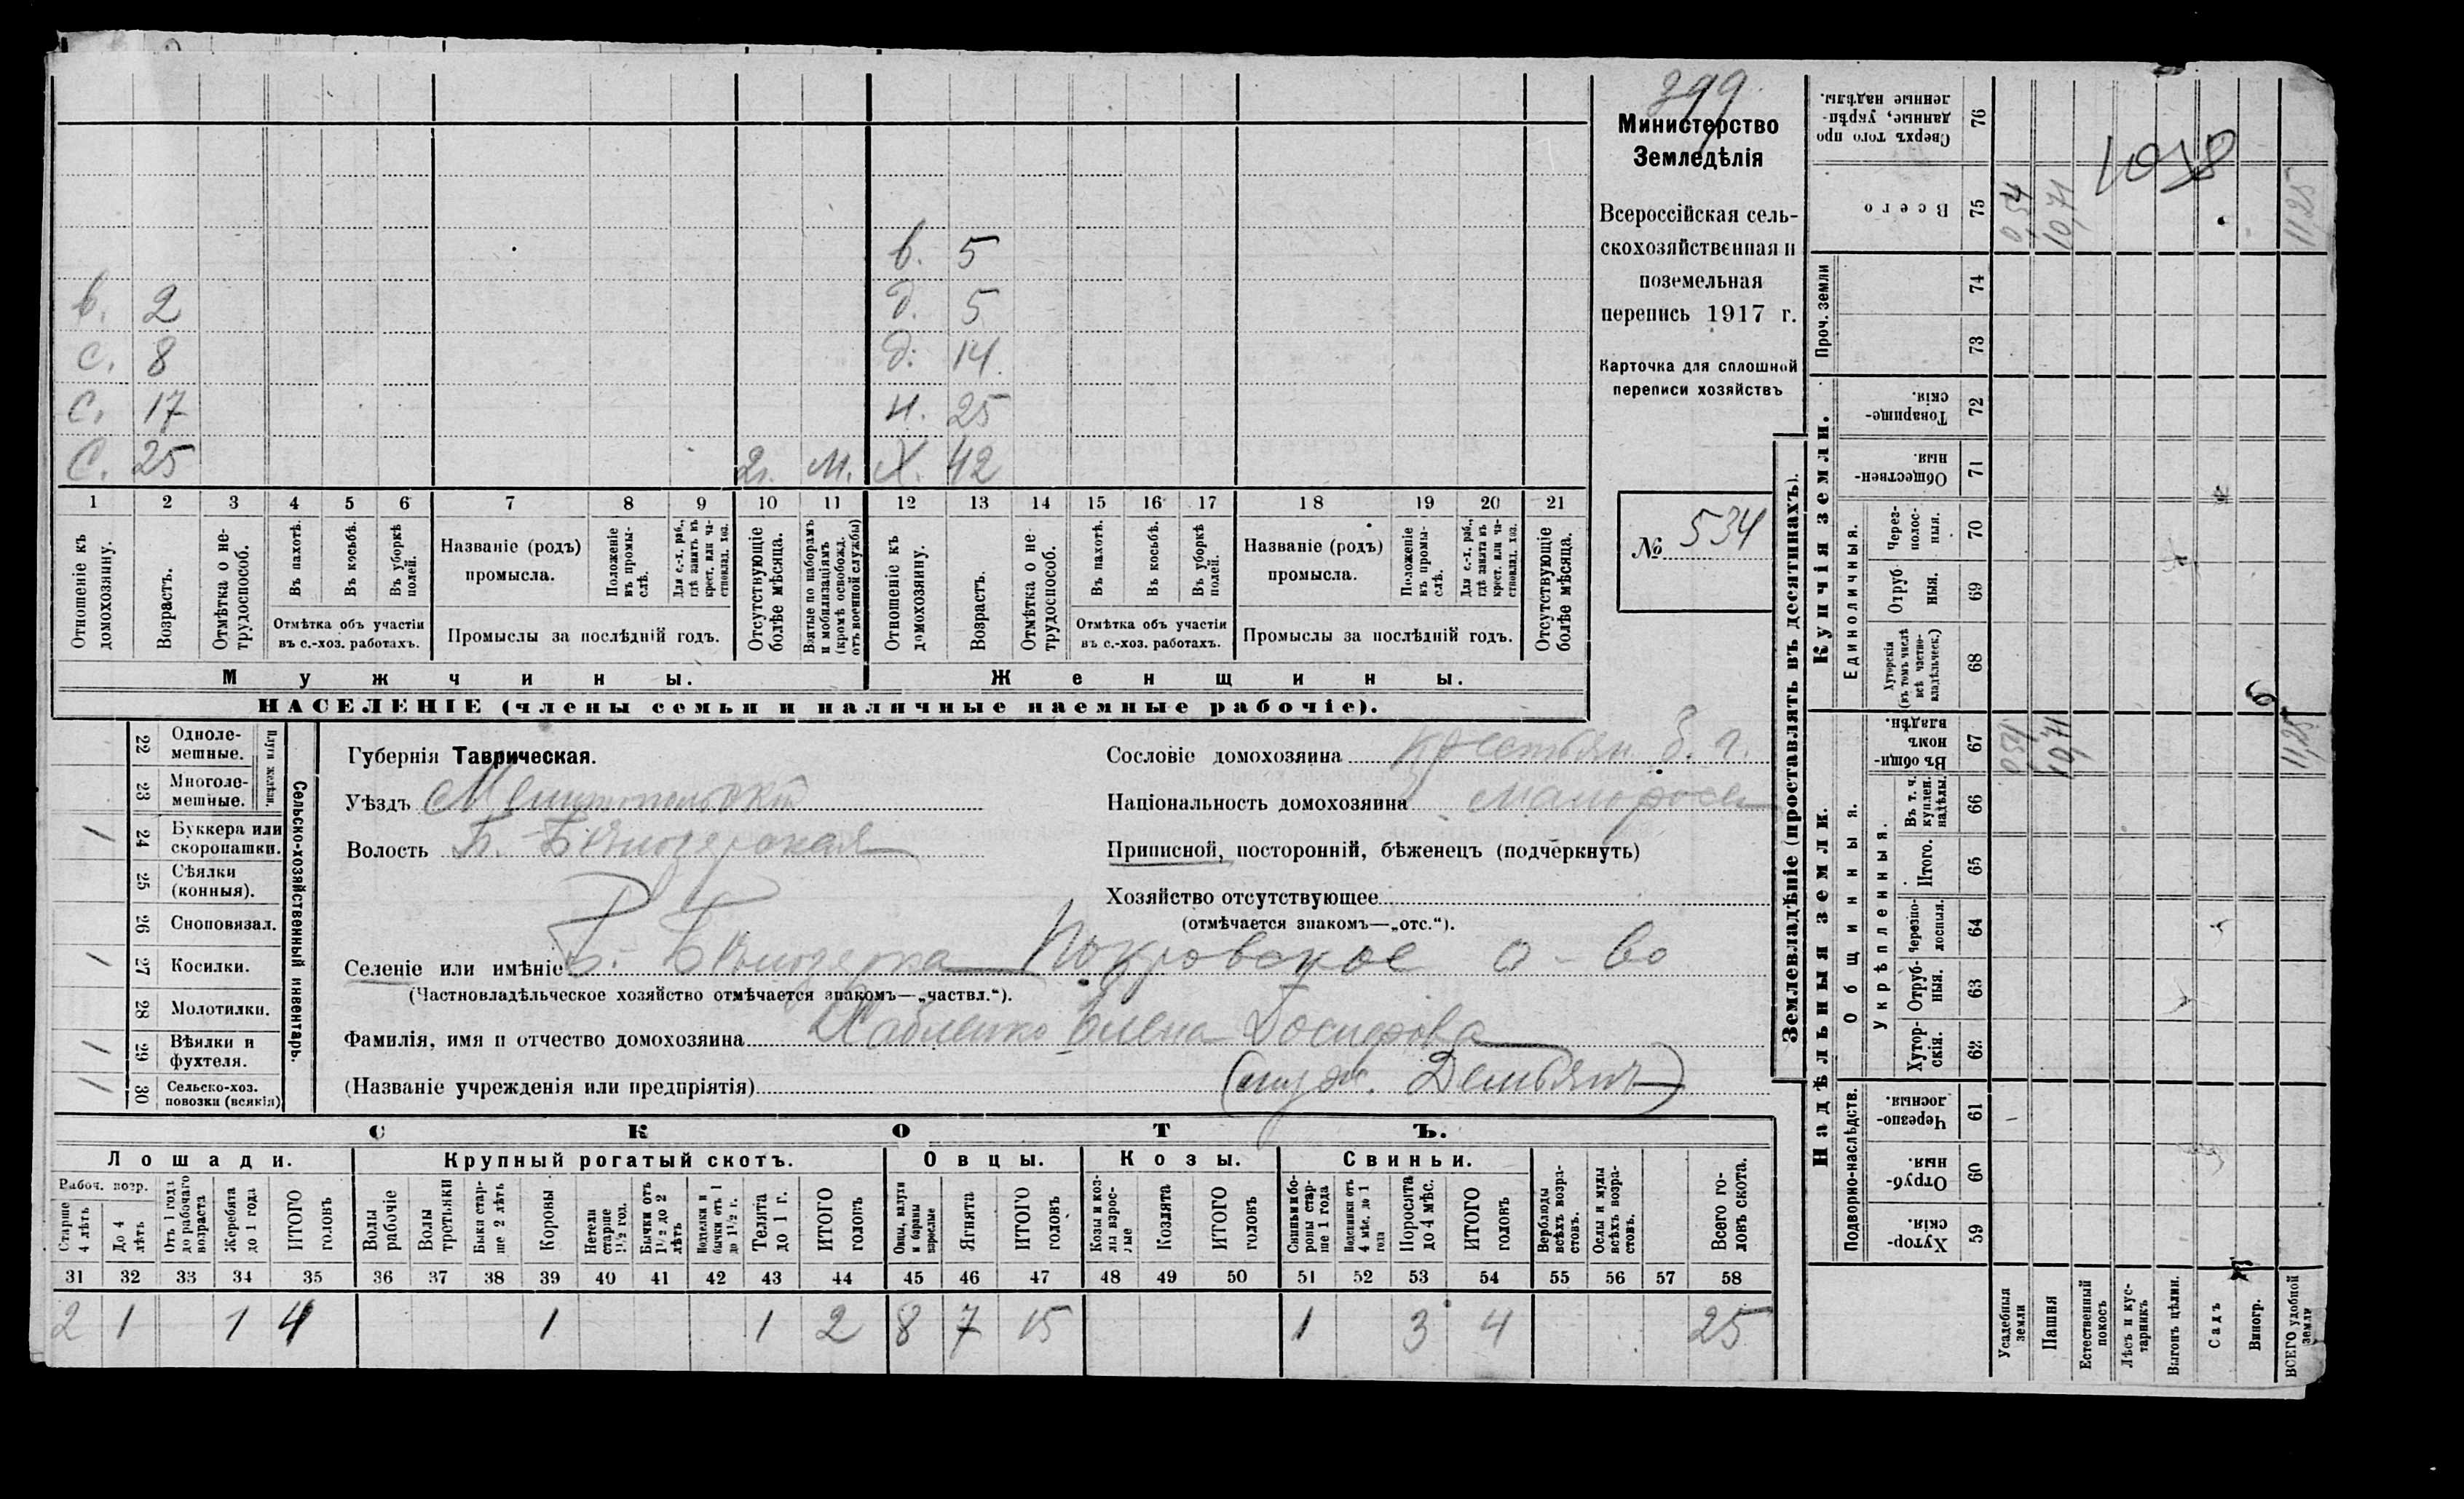 399
Министерство
Земледѣлія
Всероссійская сель-
скохозяйственная и
поземельная
перепись 1917 г.
Карточка для сплошной
переписи хозяйствъ
№ 534
в. 5
в. 2 д. 5
с. 8 д. 14
с. 17 н. 25
с. 25 2г. м. х. 42
1 2 3 4 5 6 7 8 9 10 11 12 13 14 15 16 17 18 19 20 21
Отношеніе къ домохозяину.
Возрастъ.
Отмѣтка о не-
трудоспособ.
Въ пахотѣ.
Въ косьбѣ.
Въ уборкѣ полей.
Отмѣтка объ участіи
въ с.-хоз. работахъ.
Названіе (родъ)
промысла.
Положеніе въ промы-
слѣ.
Для с.-х. раб., гдѣ занятъ въ крест. или ча-
стновлад. хоз.
Промыслы за послѣдній годъ.
Отсутствующіе болѣе мѣсяца.
Взятые по наборамъ и мобилизаціямъ (кромѣ освобожд. отъ военной службы)
Отношеніе къ домохозяину.
Возрастъ.
Отмѣтка о не
трудоспособ.
Въ пахотѣ.
Въ косьбѣ.
Въ уборкѣ полей.
Отмѣтка объ участіи
въ с.-хоз. работахъ.
Названіе (родъ)
промысла.
Положеніе въ промы-
слѣ.
Для с.-х. раб., гдѣ занята въ крест. или ча-
стновлад. хоз.
Промыслы за послѣдній годъ.
Отсутствующіе болѣе мѣсяца.
Мужчины. Женщины.
НАСЕЛЕНІЕ (члены семьи и наличные наемные рабочіе).
Сельско-хозяйственный инвентарь.
Плуги желѣзн.
22 Одноле-
мешные.
23 Многоле-
мешные.
/ 24 Буккера или
скоропашки.
25 Сѣялки
(конныя).
26 Сноповязал.
/ 27 Косилки.
28 Молотилки.
/ 29 Вѣялки и
фухтеля.
/ 30 Сельско-хоз.
повозки (всякія)
Губернія Таврическая.
Уѣздъ Мелитопольскій
Волость Б. Бѣлозерская
Сословіе домохозяина крестьян. б. г.
Національность домохозяина малоросс
Приписной, посторонній, бѣженецъ (подчеркнуть)
Хозяйство отсутствующее
(отмѣчается знакомъ—„отс.“).
Селеніе или имѣніе Б. Бѣлозерка Покровское о-во
(Частновладѣльческое хозяйство отмѣчается знакомъ—„частвл.“).
Фамилія, имя и отчество домохозяина Елена
(Названіе учрежденія или предпріятія) (муж. Демьянъ)
СКОТЪ.
Лошади. Крупный рогатый скотъ. Овцы. Козы. Свиньи.
Рабоч. возр.
Старше 4 лѣтъ
До 4 лѣтъ
Отъ 1 года до рабочаго возраста
Жеребята до 1 года
ИТОГО головъ
Волы рабочіе
Волы третьяки
Быки стар-
ше 2 лѣтъ
Коровы
Нетели старше 1½ год.
Бычки отъ 1½ до 2 лѣтъ
Телки и бычки отъ 1 до 1½ г.
Телята до 1 г.
ИТОГО головъ
Овцы, валухи и бараны взрослые
Ягнята
ИТОГО головъ
Козы и коз-
лы взрос-
лые
Козлята
ИТОГО головъ
Свиньи и бо-
роны стар-
ше 1 года
Подсвинки отъ 4 мѣс. до 1 года
Поросята до 4 мѣс.
ИТОГО головъ
Верблюды всѣхъ возра-
стовъ.
Ослы и мулы всѣхъ возра-
стовъ.
Всего го-
ловъ скота.
31 32 33 34 35 36 37 38 39 40 41 42 43 44 45 46 47 48 49 50 51 52 53 54 55 56 57 58
2 1 1 4 1 1 2 8 7 15 1 3 4 25
Землевладѣніе (проставлять въ десятинахъ).
Надѣльныя земли. Купчія земли. Проч. земли
Подворно-наслѣдств.
Общинныя.
Укрѣпленныя.
Единоличныя.
Сверхъ того про
данные, укрѣп-
ленные надѣлы. 76
Всего 75 0,54 10,71 11,25
1018
74
73
Товарище-
скія. 72
Обществен-
ныя. 71
Через-
полос-
ныя. 70
Отруб
ныя. 69
Хуторскія
(въ томъ числѣ
всѣ частно-
владѣльческ.) 68
Въ общи-
номъ
владѣн. 67 0,54 10,71 11,25
Въ т. ч.
куплен.
надѣлы. 66
Итого. 65
Черезпо-
лосныя. 64
Отруб-
ныя. 63
Хутор-
скія. 62
Черезпо-
лосныя. 61
Отруб-
ныя. 60
Хутор-
скія. 59
Усадебныя земли
Пашня
Естественный покосъ
Лѣсъ и кус-
тарникъ
Выгонъ цѣлин.
Садъ
Виногр.
ВСЕГО удобной земли